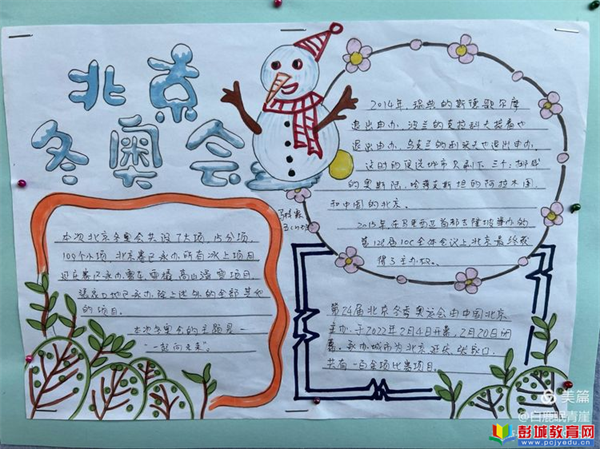 北京
冬奥会
2014年,瑞典的斯德歌尔摩
退出申办,波兰的克拉科夫接着也
退出申办,乌克兰的利沃夫也退出申办,
这时的候选城市只剩下三个,挪威
的奥斯陆,哈萨克斯坦的阿拉木图
和中国的北京。
2015年,在
第128届IOC全体会议上,北京最终获
得了主办权。
本次北京冬奥会共设7大项,15分项,
109个小项,北京赛区承办所有冰上项目
延庆赛区承办雪车、雪橇、高山滑雪项目
张家口赛区承办除上述外的全部其他
的项目。
本次冬奥会的主题是——
“一起向未来”。
第24届北京冬季奥运会由中国北京
主办,于2022年2月4日开幕,2月20日闭
幕,承办城市为北京、延庆、张家口,
共有一百余项比赛项目。
美篇
@白鹿眠青崖
彭城教育网
www.pcjyedu.cn